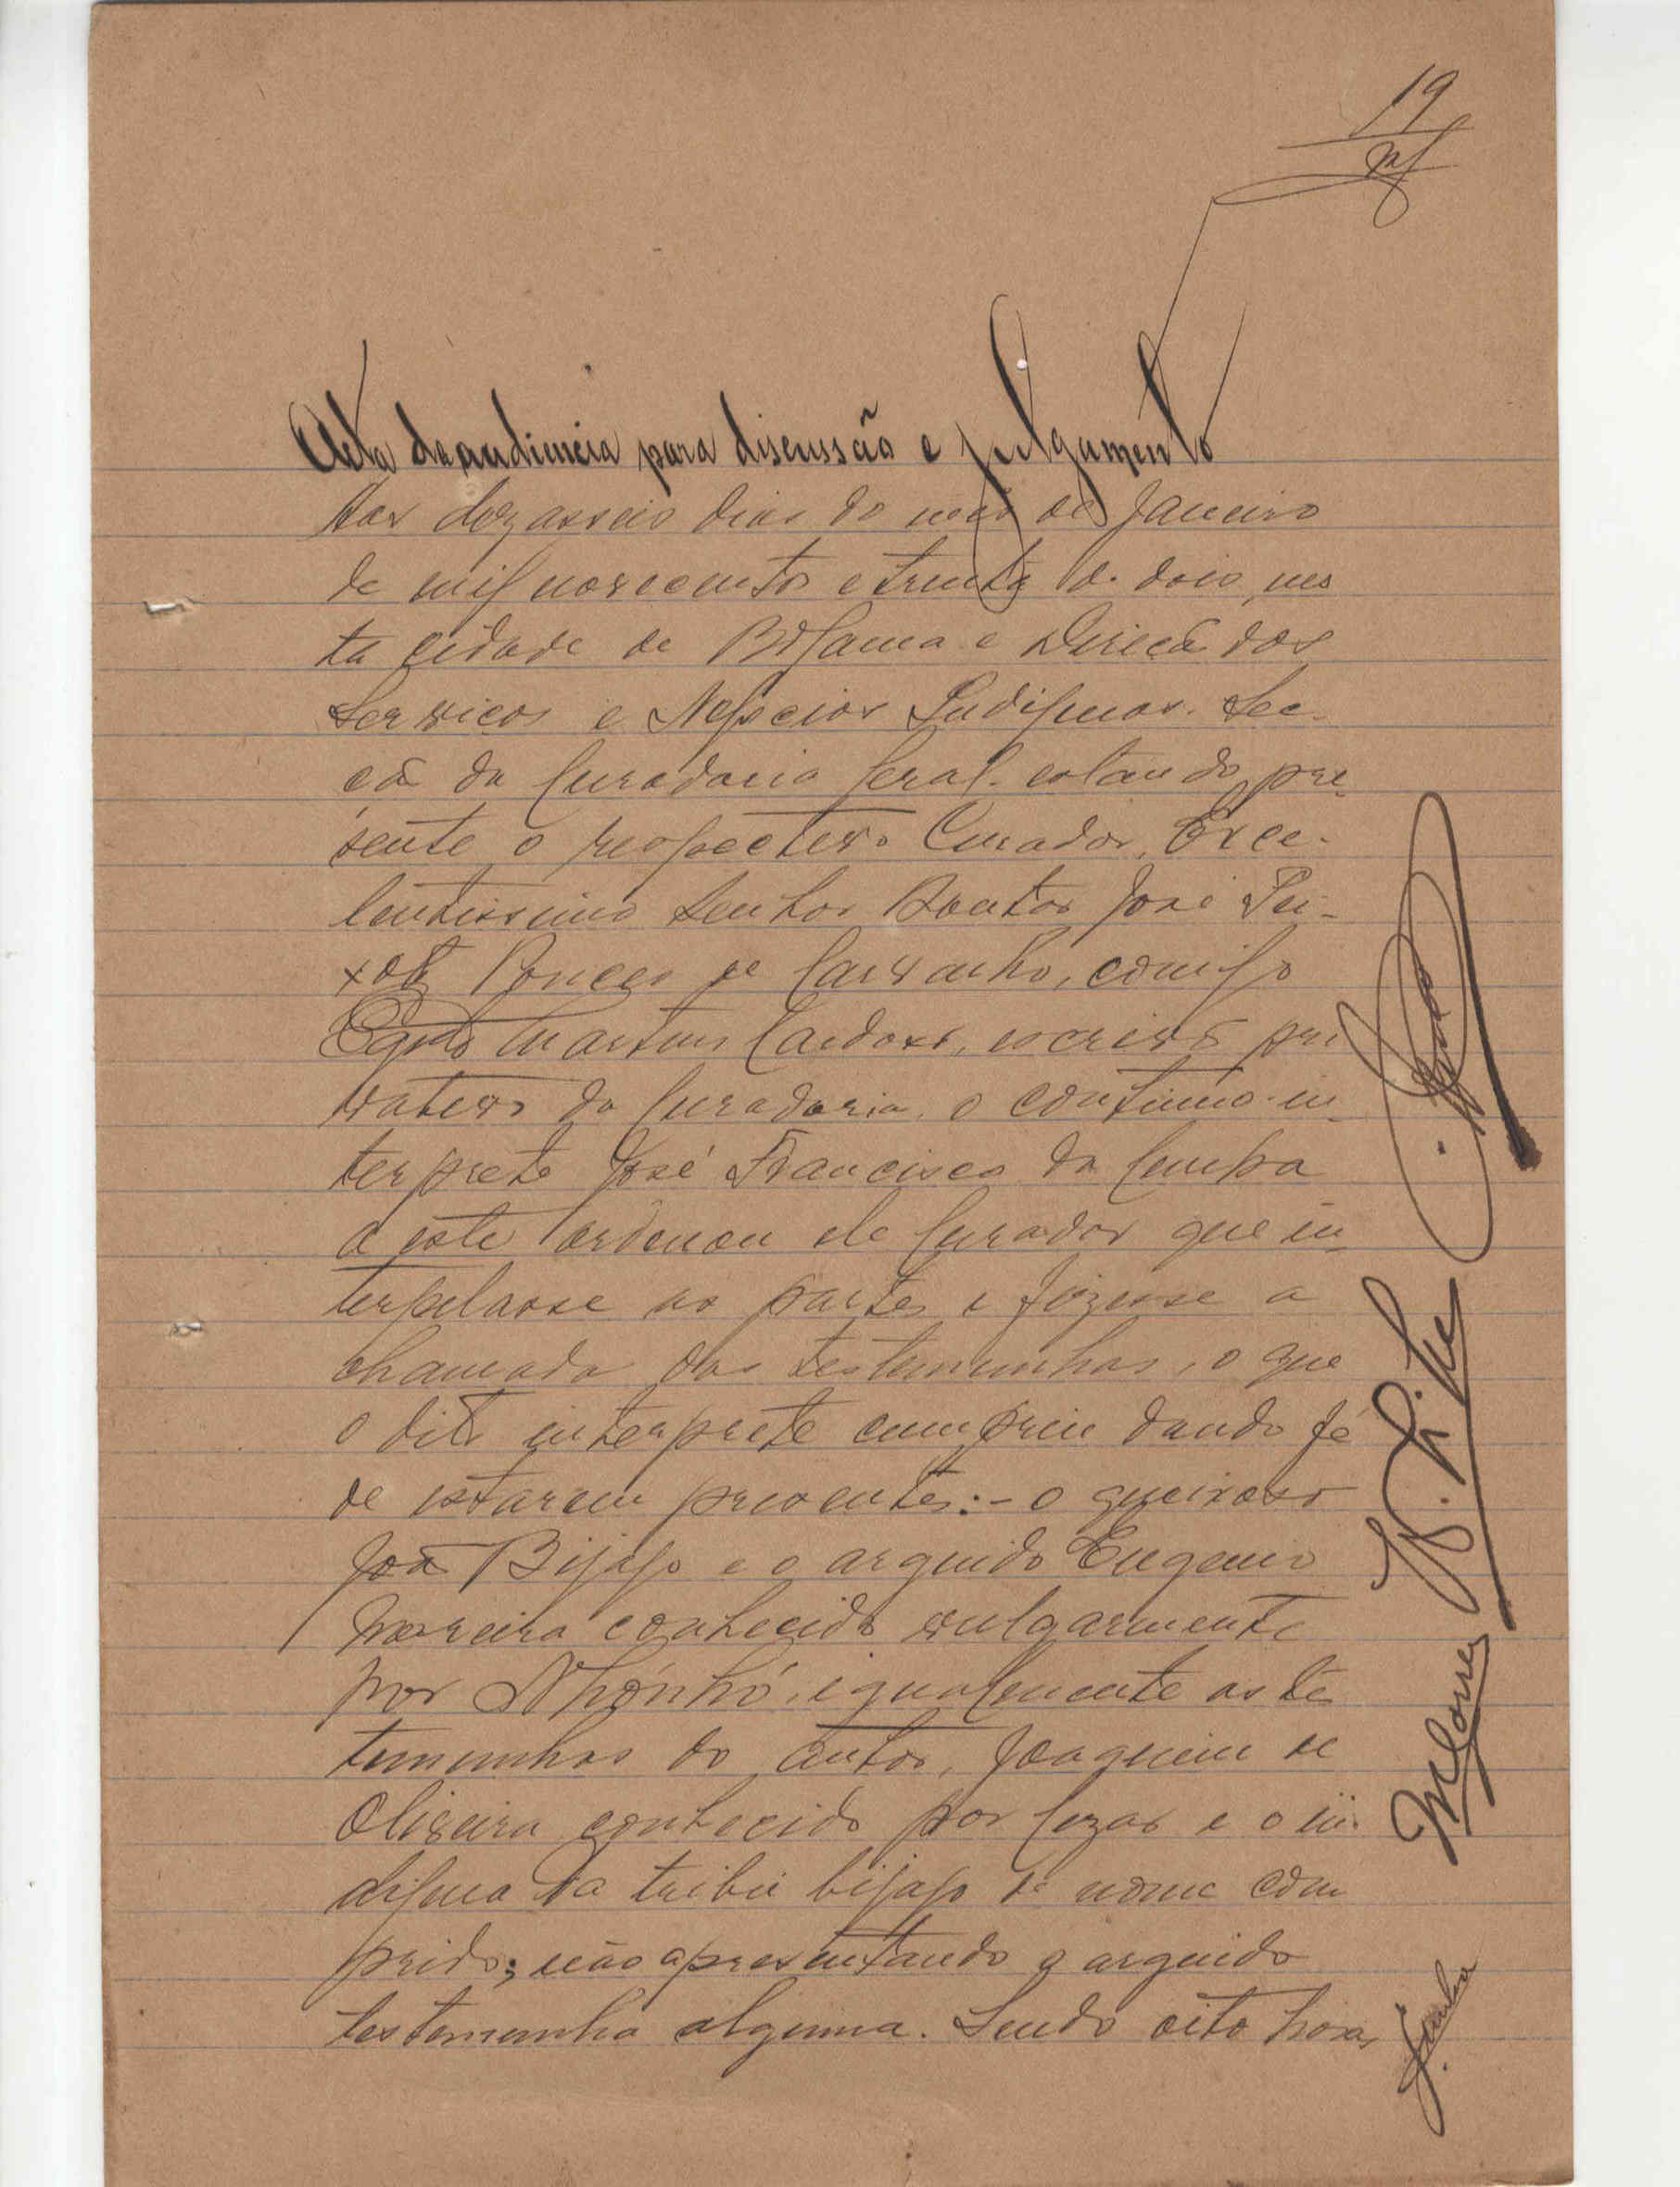 19
Acta da audiencia para discussão e julgamento
Aos dezasseis dias do mês de Janeiro
de mil novecentos e trinta e dois, nes
ta cidade de Bolama e Direcã dos
Servicos e Negocios Indigenas. Sec-
cã da Curadoria Geral. estando pre-
sente o respectivo Curador, Exce-
lentissimo Senhor Doutor José Pei-
xoto Ponces de Carvalho, comigo
Martins Cardoso, escrivã pri
vativo da Curadoria, o contínuo in-
terprete José Francisco da Cunha
a este ordenou ele Curador que in-
terpelasse as partes e fizesse a
chamada das testemunhas, o que
o dito interprete cumpriu dando fé
de estarem presentes:- o queixoso
Joã Bijago e o arguido Eugenio
Moreira conhecido vulgarmente
por Nhónhó, igualmente as tes
temunhas do autor, Joaquim de
Oliveira conhecido por Cezar e o in-
digena da tribu bijago de nome com
prido; não apresentando o arguido
testemunha alguma. Sendo oito horas
J. Cunha